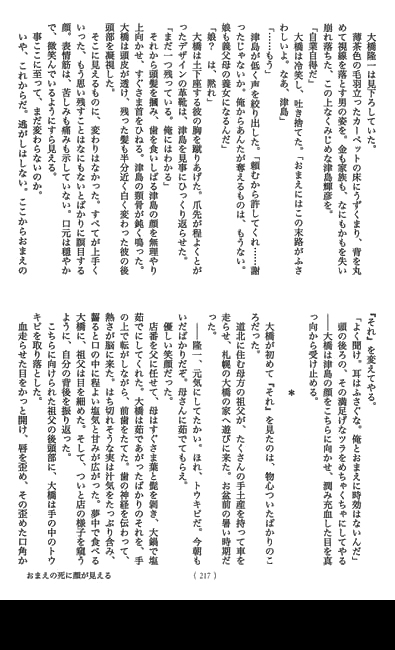 大橋隆一は見下ろしていた。
薄茶色の毛羽立ったカーペットの床にうずくまり、背を丸
めて視線を落とす男の姿を。金も家族も、なにもかもを失い
崩れ落ちた、この上なくみじめな津島輝彦を。
「自業自得だ」
大橋は冷笑し、吐き捨てた。「おまえにはこの末路がふさ
わしいよ。なあ、津島」
「……もう」
津島が低く声を絞り出した。「頼むから許してくれ……謝
ったじゃないか。俺からあんたが奪えるものは、もうない。
娘も義父母の養女になるんだ」
「娘？　は、黙れ」
大橋は土下座する彼の胸を蹴りあげた。爪先が程よくとが
ったデザインの革靴は、津島を見事にひっくり返らせた。
「まだ一つ残っている。俺にはわかる」
それから頭髪を掴み、歯を食いしばる津島の顔を無理やり
上向かせ、すぐさま首をひねる。津島の頸骨が鈍く鳴った。
大橋は頭皮が透け、残った髪も半分近く白く変わった彼の後
頭部を凝視した。
そこに見えるものに、変わりはなかった。すべてが上手く
いった、もう思い残すことはなにもないとばかりに瞑目する
顔。表情筋は、苦しみも痛みも示していない。口元は穏やか
で、微笑んでいるようにすら見える。
事ここに至って、まだ変わらないのか。
いや、これからだ。逃がしはしない。ここからおまえの
『それ』を変えてやる。
「よく聞け。耳はふさぐな。俺とおまえに時効はないんだ」
頭の後ろの、その満足げなツラをめちゃくちゃにしてやる
――大橋は津島の顔をこちらに向かせ、潤み充血した目を真
っ向から受け止める。
＊
大橋が初めて『それ』を見たのは、物心ついたばかりのこ
ろだった。
道北に住む母方の祖父が、たくさんの手土産を持って車を
走らせ、札幌の大橋の家へ遊びに来た。お盆前の暑い時期だ
った。
――隆一、元気にしてたかい。ほれ、トウキビだ。今朝も
いだばかりだぞ。母さんに茹でてもらえ。
優しい笑顔だった。
店番を父に任せて、母はすぐさま葉と髭を剥き、大鍋で塩
茹でにしてくれた。大橋は茹であがったばかりのそれを、手
の上で転がしながら、前歯をたてた。歯の神経を伝わって、
熱さが脳に来た。はち切れそうな実は汁気をたっぷり含み、
齧ると口の中に程よい塩気と甘みが広がった。夢中で食べる
大橋に、祖父は目を細めた。そして、ついと店の様子を窺う
ように、自分の背後を振り返った。
こちらに向けられた祖父の後頭部に、大橋は手の中のトウ
キビを取り落とした。
血走らせた目をかっと開け、唇を歪め、その歪めた口角か
おまえの死に顔が見える
(217)